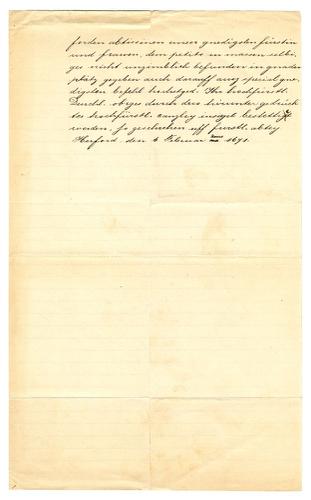 forden abticinen unser gnedigsten fürstin
und frauen, dem petito in massen selbi-
ges nicht unzimblich befunden in gnaden
platz gegeben auch darauff auss special gne-
digsten befehl hochstged. Ihr hochfürstl.
Durchl. obges durch das hirunter gedruck
tes hochfürstl. cantzley insigel bestettigt
worden, so geschrehen uff furstl. abtey
Herford, den 4 Februar 1691.